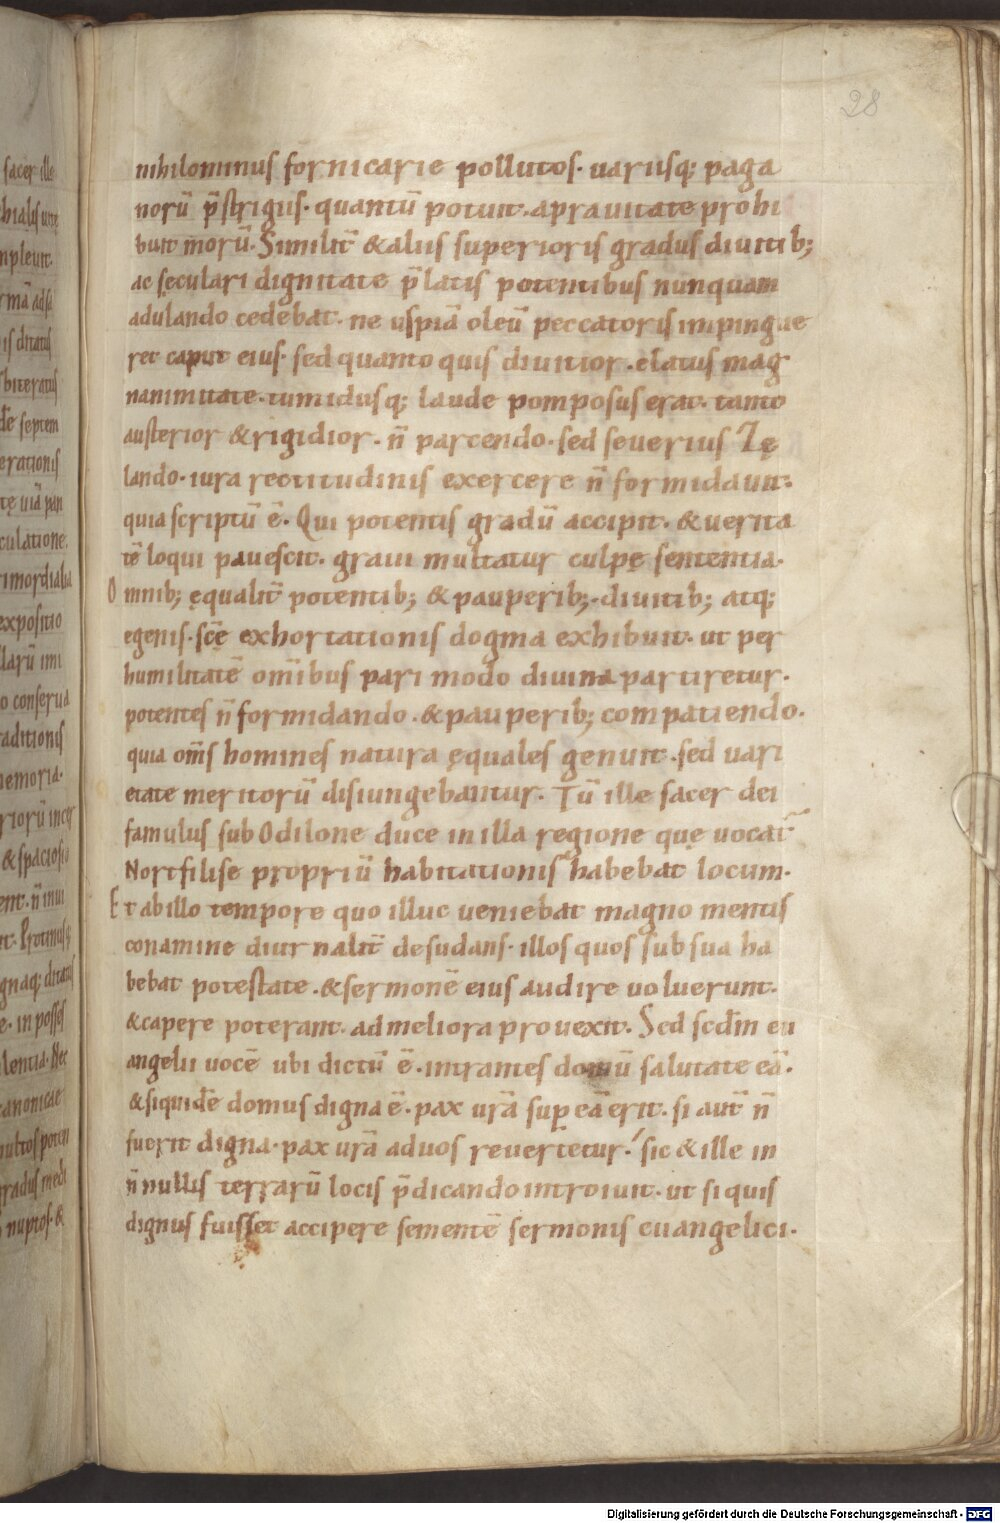 28
nihilominus fornicarie pollutos· uariisq; paga
norū p̄strigiis· quantū potuit· a prauitate prohi
buit morū. Similit̄ & aliis superioris gradus diuitib;
ac sęculari dignitate p̄latis potentibus nunquam
adulando cedebat· ne uspiā oleū peccatoris impingue
ret caput eius· sed quanto quis diuitior· elatus mag
nanimitate· tumidusq; laude pomposus erat· tanto
austerior & rigidior· n̄ parcendo· sed seuerius Zę
lando· iura rectitudinis exercere n̄ formidauit·
quia scriptū ē. Qui potentis gradū accipit· & uerita
tē loqui pauescit· graui multatur culpę sententia·
Omnib; ęqualit̄ potentib; & pauperib;· diuitib; atq;
egenis· scę̄ exhortationis dogma exhibuit· ut per
humilitatē om̄ibus pari modo diuina partiretur·
potentes n̄ formidando· & pauperib; compatiendo·
quia om̄s homines natura ęquales genuit· sed uari
etate meritorū disiungebantur. Tū ille sacer dei
famulus sub Odilone duce in illa regione quę uocat̄
Nortfilise propriū habitationis habebat locum·
Et ab illo tempore quo illuc ueniebat magno mentis
conamine diurnalit̄ desudans· illos quos sub sua ha
bebat potestate· & sermonē eius audire uoluerunt·
& capere poterant· ad meliora prouexit. Sed scd̄m eu
angelii uocē ubi dictū ē· intrantes domū salutate eā·
& siquidē domus digna ē· pax urā sup eā erit· si aut̄ n̄
fuerit digna· pax urā ad uos reuertetur· sic & ille in
n̄nullis terrarū locis p̄dicando introiuit· ut si quis
dignus fuisset accipere sementē sermonis euangelici·
Digitalisierung gefördert durch die Deutsche Forschungsgemeinschaft - DFG